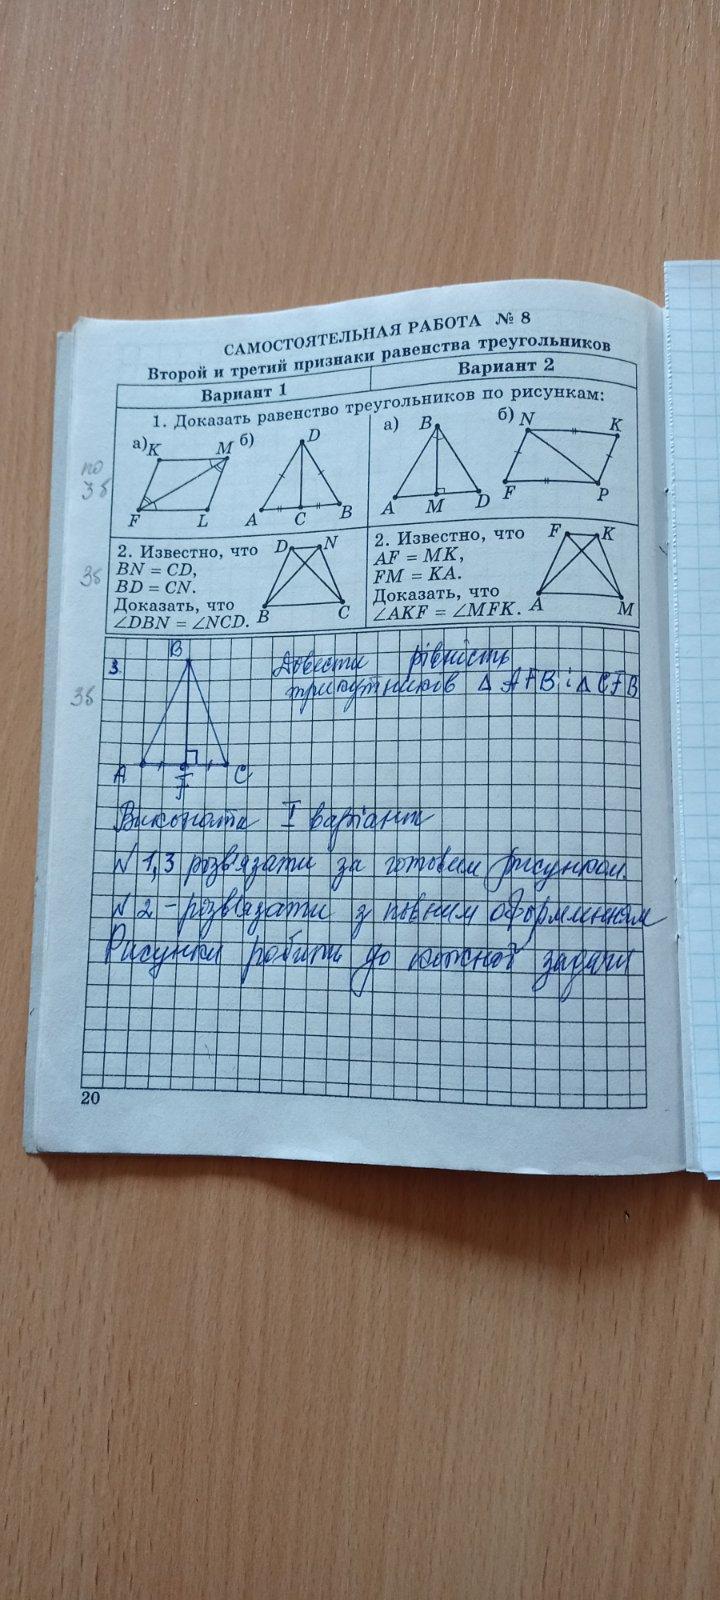 САМОСТОЯТЕЛЬНАЯ РАБОТА № 8
Второй и третий признаки равенства треугольников
Вариант 1
Вариант 2
1. Доказать равенство треугольников по рисункам:
а) K M
F L
б) D
A C B
а) B
A M D
б) N K
F P
по
3б
2. Известно, что
BN = CD,
BD = CN.
Доказать, что
∠DBN = ∠NCD.
D N
B C
3б
2. Известно, что
AF = MK,
FM = KA.
Доказать, что
∠AKF = ∠MFK.
F K
A M
3б
3.
B
A F C
Довести рівність
трикутників Δ AFB і Δ CFB
Виконати I варіант
№ 1,3 розв'язати за готовим рисунком.
№ 2 – розв'язати з повним оформленням
Рисунки робити до кожної задачі
20